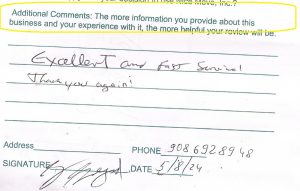 Additional Comments: The more information you provide about this
business and your experience with it, the more helpful your review will be.
Excellent and Fast Service!
Thank you again!
Address
PHONE 9086928948
SIGNATURE DATE 5/8/24